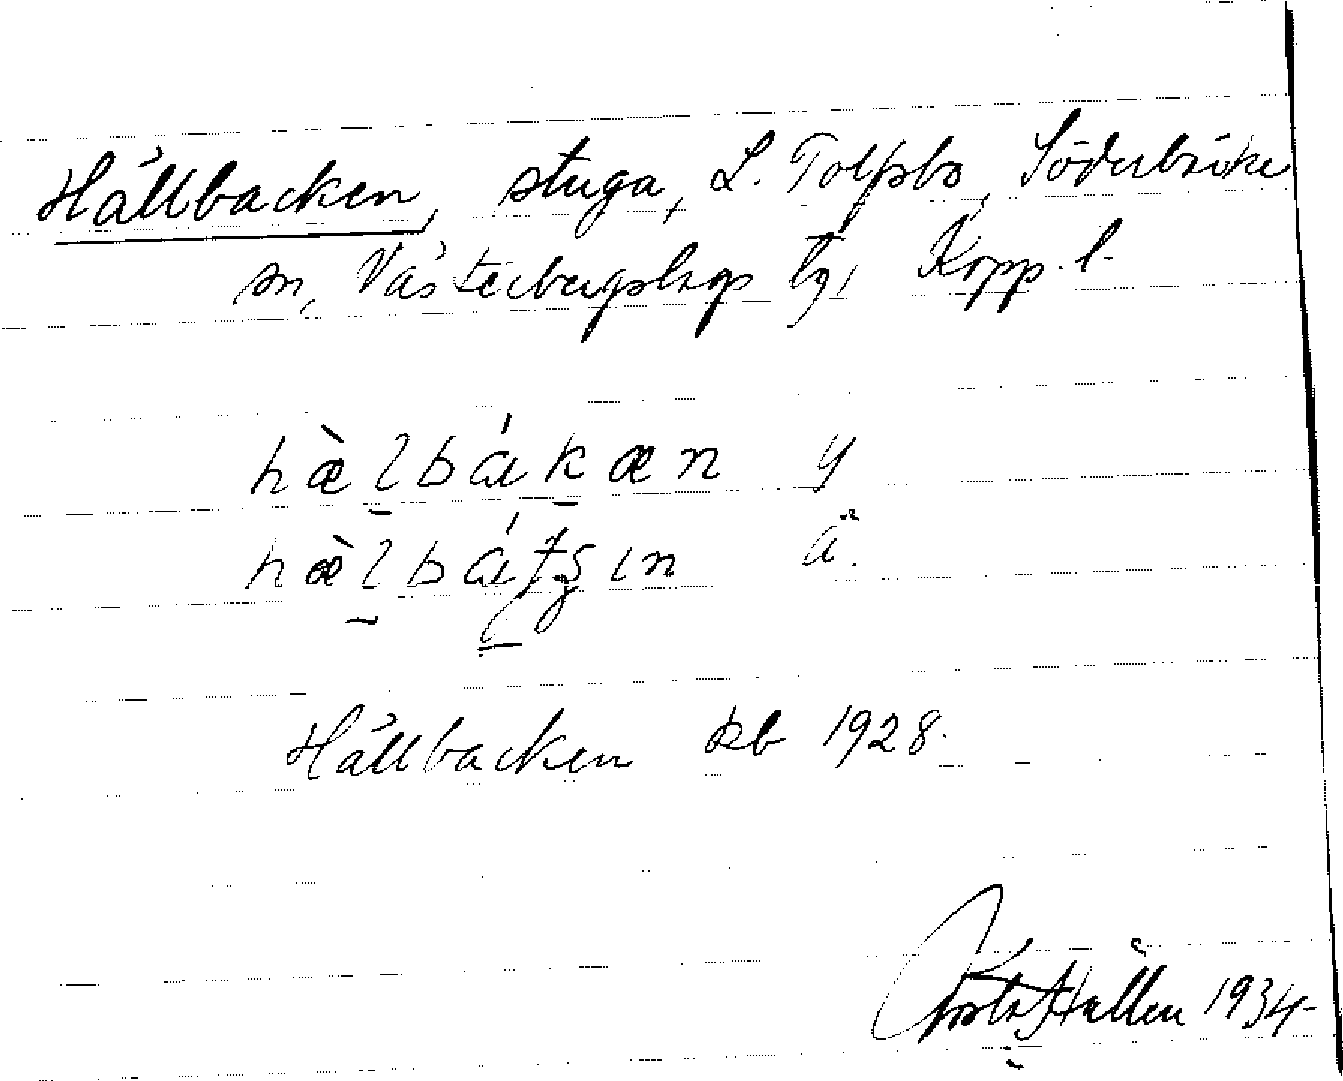 Hällbacken, stuga, L. Tolfsbo, Söderbärke
sn, Västerbergslags tg, Kopp. l.
hæ̀lbákæn y
hæ̀lbátʂın ä.
Hällbacken kb 1928.
Gösta Hallen 1934